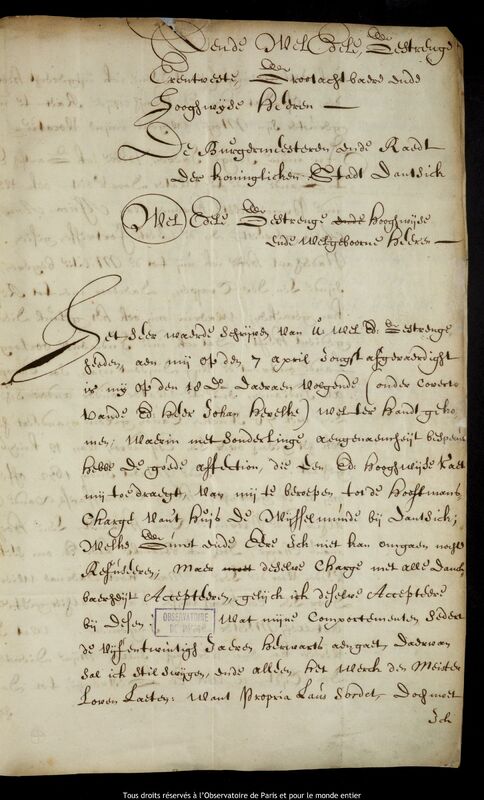 Aende Wel Edele, Gestrenge
Erentveste, Grootachtbaere ende
Hooghwijse Heeren
De Burgermeesteren ende Raedt
der Koninglicken Stadt Dantsick
Wel Edele Gestrenge ende Hooghwijse
ende Welgeboorne Heeren
Het seer waerde schrijven van U Wel Ed. Gestrenge
heeden, aen mij op den 7 april Jongst afgevaerdight
is mij op den 18 De daeraen volgende (onder Coverto
vande Ed Heer Johan Hevelke) wel ter handt geko
men; Waerin met sonderlinge aengenaemheijt bespeurt
hebbe De goede affection, die Een Ed: Hooghwijse Raet
mij toedraegt, van mij te beroepen tot de Hooftmans
Charge van't Huijs De Wijsselmunde bij Dantsick;
Welke Gunst ende Eere Ick niet kan omgaen nochte
Refuseeren; Maer deselve Charge met alle Danck
baerheijt Accepteeren, gelijck ick deselve Accepteere
bij desen: Wat mijne Comportementen sedert
de vijfentwintigh Jaeren herwarts aengaet, daervan
sal ick stil swijgen, ende alleen het Werck den Meester
Loven Laeten: Want Propria Laus sordet, doch moet
Ick
OBSERVATOIRE
DE PARIS
Tous droits réservés à l'Observatoire de Paris et pour le monde entier